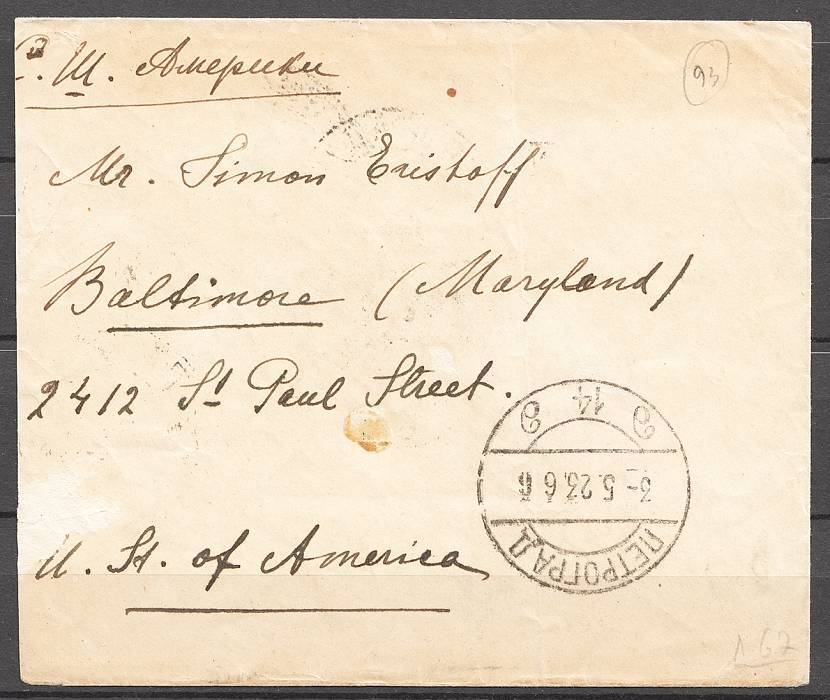 С. Ш. Америки
93
Mr. Simon Eristoff
Baltimore (Maryland)
2412 St Paul Street.
U. St. of America
ПЕТРОГРАД
3-5.23.6
14